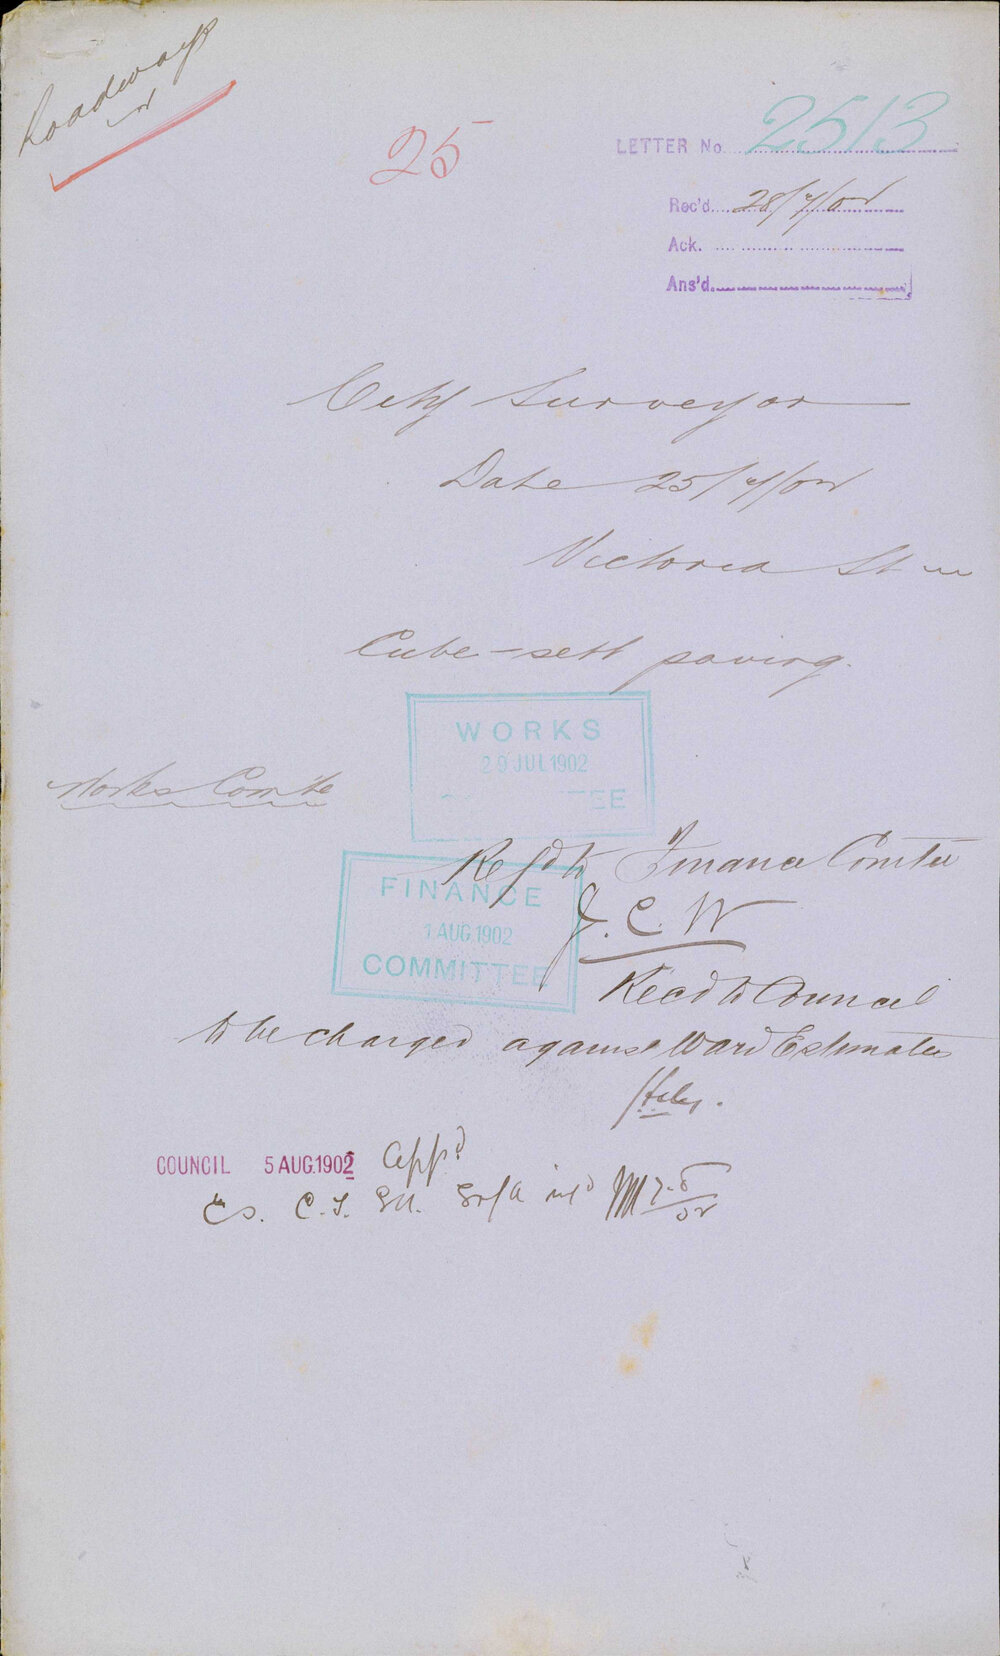 Roadways
25
LETTER No. 2513
Rec'd. 28/7/02
Ack.
Ans'd.
City Surveyor
Date 25/7/02
Victoria St
Cube-sett paving.
WORKS
29 JUL 1902
TEE
Works Comtee
Refd to Finance Comtee
FINANCE
1 AUG 1902
COMMITTEE
J. C. W
Recd to Council
to be charged against Ward Estimates
COUNCIL 5 AUG. 1902 appd
C.S. C.T.